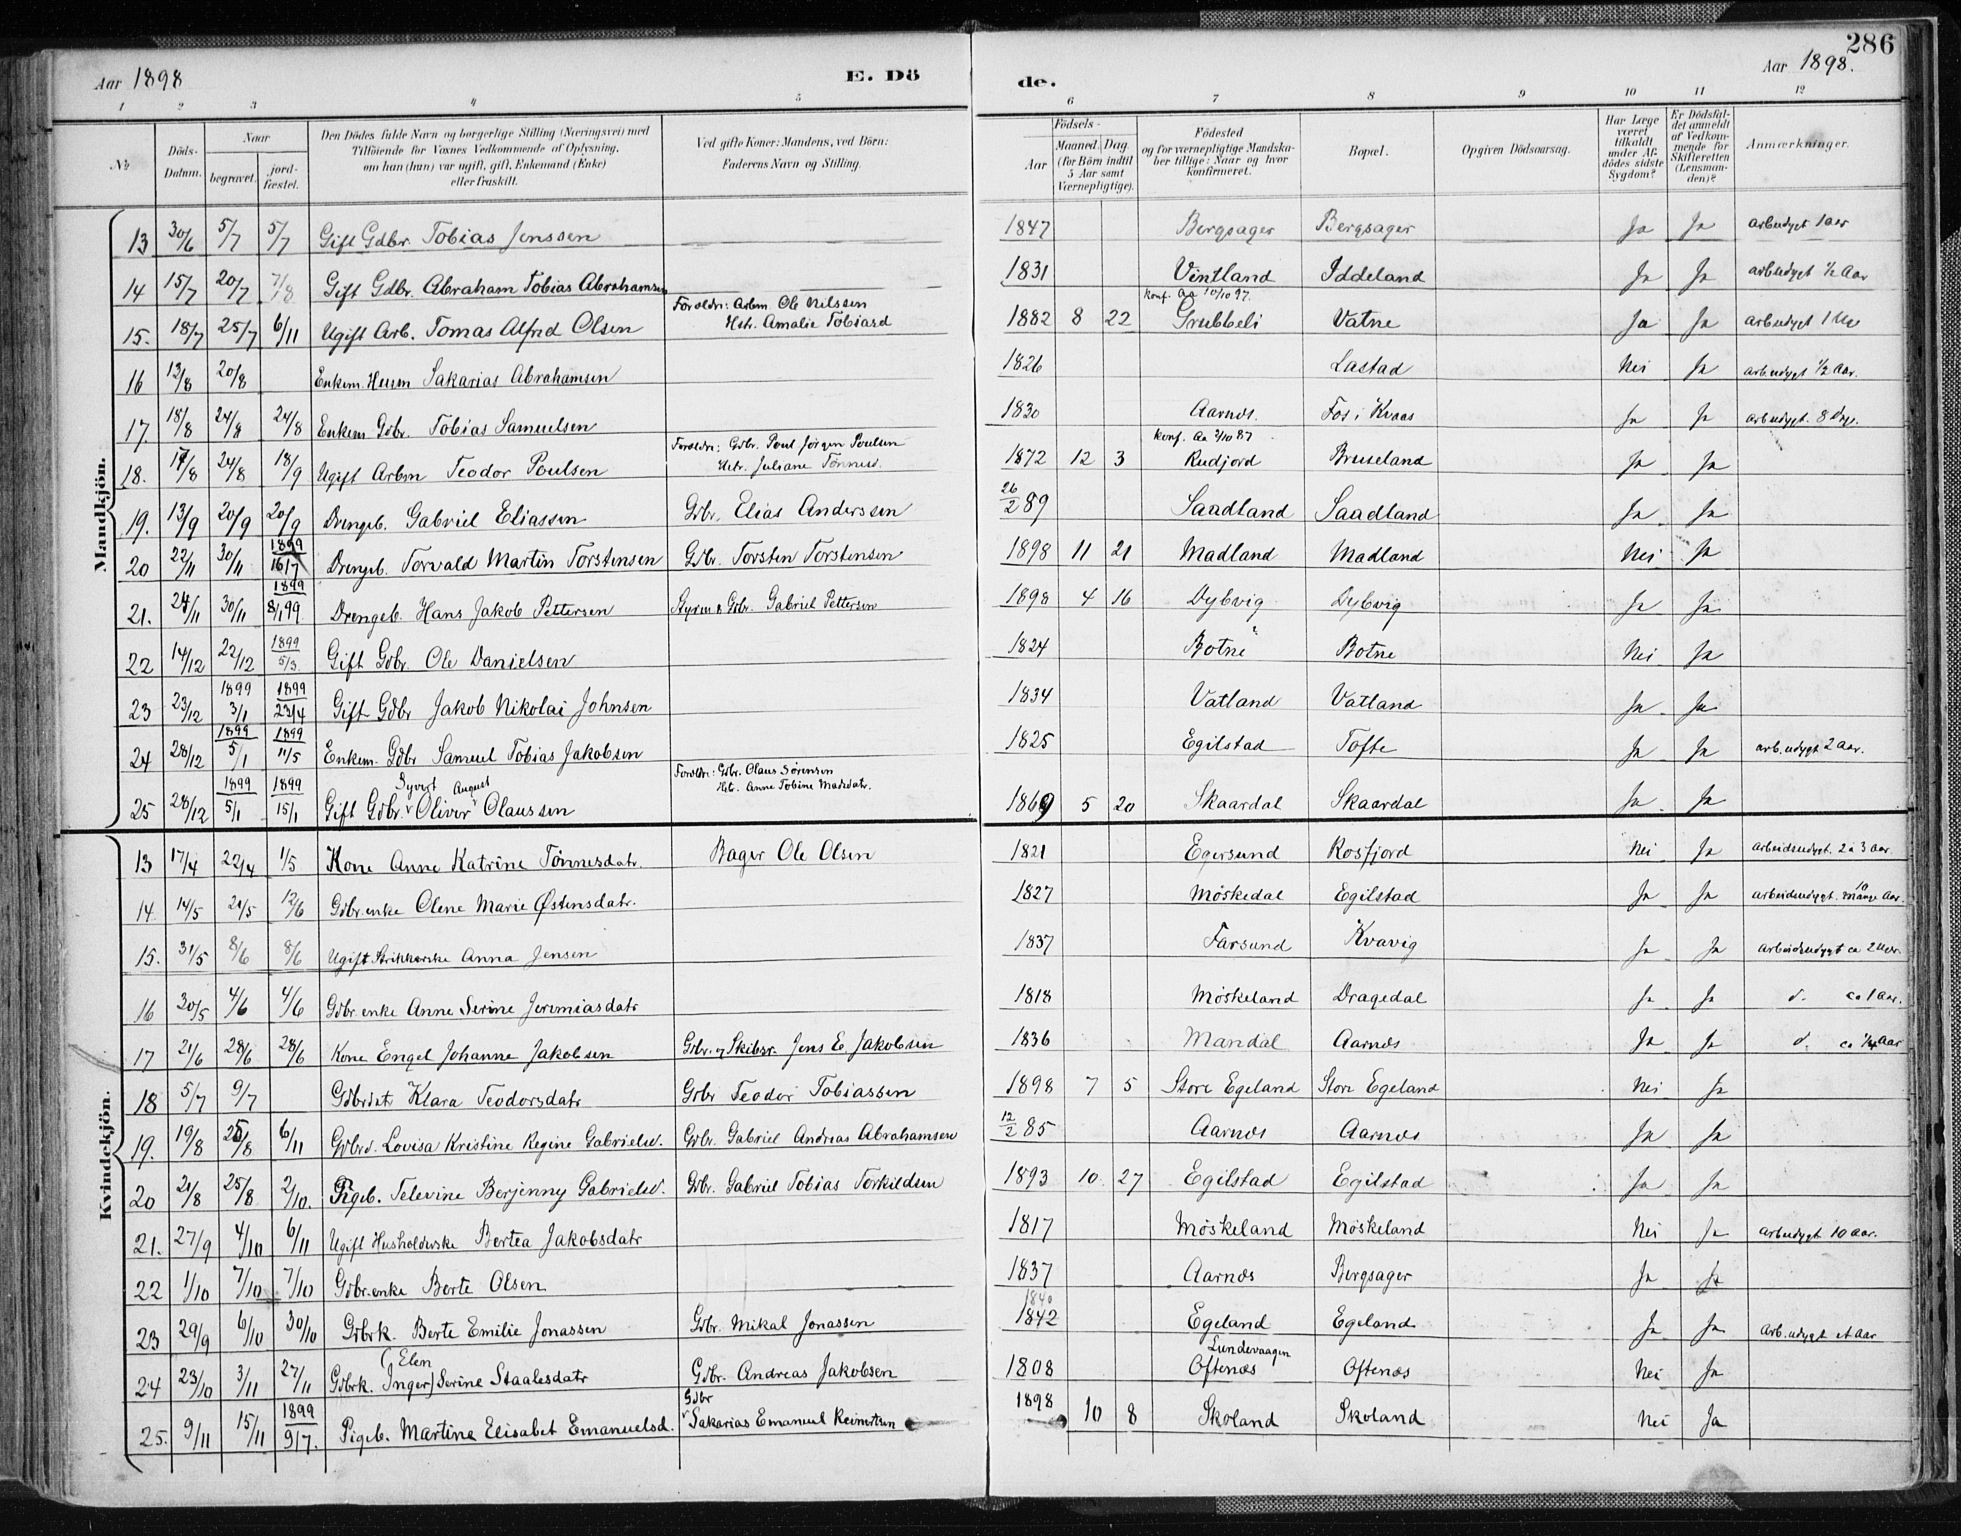 286
Aar 1898
E. Dö
de.
Aar 1898.
1 2 3 4 5 6 7 8 9 10 11 12
No
Döds-Datum.
Naar
begravet.
jord-fæstet.
Den Dödes fulde Navn og borgerlige Stilling (Næringsvei) med
Tilföiende for Voxnes Vedkommende af Oplysning,
om han (hun) var ugift, gift, Enkemand (Enke)
eller fraskilt.
Ved gifte Koner: Mandens, ved Börn:
Faderens Navn og Stilling.
Födsels-
Aar
Maaned. Dag.
(for Börn indtil
5 Aar samt
Værnepligtige).
Födested
og for værnepligtige Mandska-
ber tillige: Naar og hvor
konfirmeret.
Bopæl.
Opgiven Dödsaarsag.
Har Læge
været
tilkaldt
under Af-
dödes sidste
Sygdom?
Er Dödsfal-
det anmeldt
af Vedkom-
mende for
Skifteretten
(Lensman-
den)?
Anmærkninger.
Mandkjön.
13 30/6 5/7 5/7 Gift Gdbr. Tobias Jenssen 1847 Bergsager Bergsager Ja Ja arbudygt 1 aar
14 15/7 20/7 7/8 Gift Gdbr. Abraham Tobias Abrahamsen 1831 Vintland Iddeland Ja Ja arbudygt 1/2 Aar
15. 18/7 25/7 6/11 Ugift Arb. Tomas Alfred Olsen Foreldre: Arbm Ole Nilssen Hstr. Amalie Tobiasd 1882 8 22 konf. Aa 10/10 97. Grubbeli Vatne Ja Ja arbudygt 1 Uge
16 13/8 20/8 Enkem. Husm Sakarias Abrahamsen 1826 Lastad Nei Ja arb.udygt 1/2 Aar.
17. 18/8 24/8 24/8 Enkem Gdbr. Tobias Samuelsen 1830 Aarnes. Fos i Kvaas Ja Ja arbudygt. 8 dage.
18. 17/8 24/8 18/9 Ugift Arbm Teodor Poulsen Foreldre: Gdbr. Poul Jörgen Poulsen Hstr. Juliane Tönnesd. 1872 12 3 konf. Aa 2/10 87 Rudjord Bruseland Ja Ja
19. 13/9 20/9 20/9 Drengeb. Gabriel Eliassen Gdbr. Elias Anderssen 26/2 89 Saadland Saadland Ja Ja
20 22/11 30/11 1899 16/7 Drengeb. Torvald Martin Torstensen Gdbr. Torsten Torstensen 1898 11 21 Madland Madland Nei Ja
21. 24/11 30/11 1899 8/1 99 Drengeb. Hans Jakob Pettersen Styrm & Gdbr. Gabriel Pettersen 1898 4 16 Dybvig Dybvig Ja Ja
22 14/12 22/12 1899 5/3 Gift Gdbr. Ole Danielsen 1824 Botne Botne Nei Ja
23 23/12 1899 3/1 1899 23/4 Gift Gdbr Jakob Nikolai Johnsen 1834 Vatland Vatland Ja Ja
24 28/12 1899 5/1 1899 11/5 Enkem. Gdbr Samuel Tobias Jakobsen 1825 Egilstad Tofte Ja Ja arb.udygt 2 aar.
25 28/12 1899 5/1 1899 15/1 Gift Gdbr. Syvert Oliver August Olaussen Foreldre: Gdbr. Olaus Sörensen Hstr. Anne Tobine Madsdatr. 1869 5 20 Skaardal Skaardal Ja Ja
Kvindekjön.
13 17/4 22/4 1/5 Kone Anne Katrine Tönnesdatr. Bager Ole Olsen 1821 Egersund Rosfjord Nei Ja arbeidsudygt. 2 a 3 aar.
14. 14/5 21/5 12/6 Gdbr.enke Olene Marie Østensdatr. 1827 Möskedal Egilstad Ja Ja arbeidsudygt. 10 mange Aar.
15. 31/5 8/6 8/6 Ugift Strikkerske Anna Jensen 1837 Farsund Kvavig Ja Ja arbeidsudygt ca 2 Uger.
16 30/5 4/6 4/6 Gdbr.enke Anne Serine Jeremiasdatr 1818 Möskeland Dragedal Ja Ja d. ca 1 Aar.
17 21/6 28/6 28/6 Kone Engel Johanne Jakobsen Gdbr. og Skibsr. Jens E. Jakobsen 1836 Mandal Aarnes Ja Ja d. ca 1/4 Aar
18 5/7 9/7 Gdbrdatr Klara Teodorsdatr Gdbr Teodor Tobiassen 1898 7 5 Store Egeland Store Egeland Nei Ja
19. 19/8 25/8 6/11 Gdbrd. Lovisa Kristine Regine Gabrielsd. Gdbr. Gabriel Andreas Abrahamsen 12/2 85 Aarnes Aarnes Ja Ja
20 21/8 25/8 2/10. Pigeb. Televine Berjenny Gabrielsd. Gdbr. Gabriel Tobias Torkildsen 1893 10 27 Egilstad Egilstad Ja Ja
21. 27/9 4/10 6/11 Ugift Husholderske Bertea Jakobsdatr 1817 Möskeland Möskeland Nei Ja arbudygt 10 aar.
22 1/10 7/10 7/10 Gdbr.enke Berte Olsen 1837 Aarnes Bergsager Ja Ja
23 29/9 6/10 30/10 Gdbrk. Berte Emilie Jonassen Gdbr. Mikal Jonassen 1840 1842 Egeland Egeland Ja Ja arb.udygt et Aar
24 23/10 3/11 27/11 Gdbrk. (Elen Inger) Serine Staalesdatr Gdbr. Andreas Jakobsen 1808 Lundevaagen Oftenæs Oftenæs Nei Ja
25. 9/11 15/11 1899 9/7. Pigeb. Martine Elisabet Emanuelsd. Gdbr Sakarias Emanuel Reinertsen 1898 10 8 Skoland Skoland Nei Ja